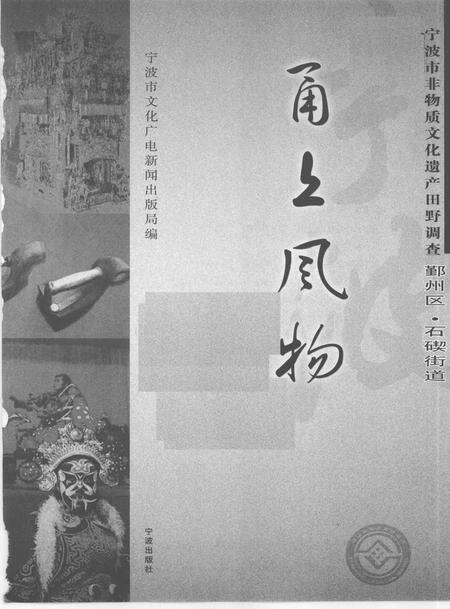 宁波市非物质文化遗产田野调查
鄞州区·石碶街道
甬上风物
宁波市文化广电新闻出版局编
宁波出版社